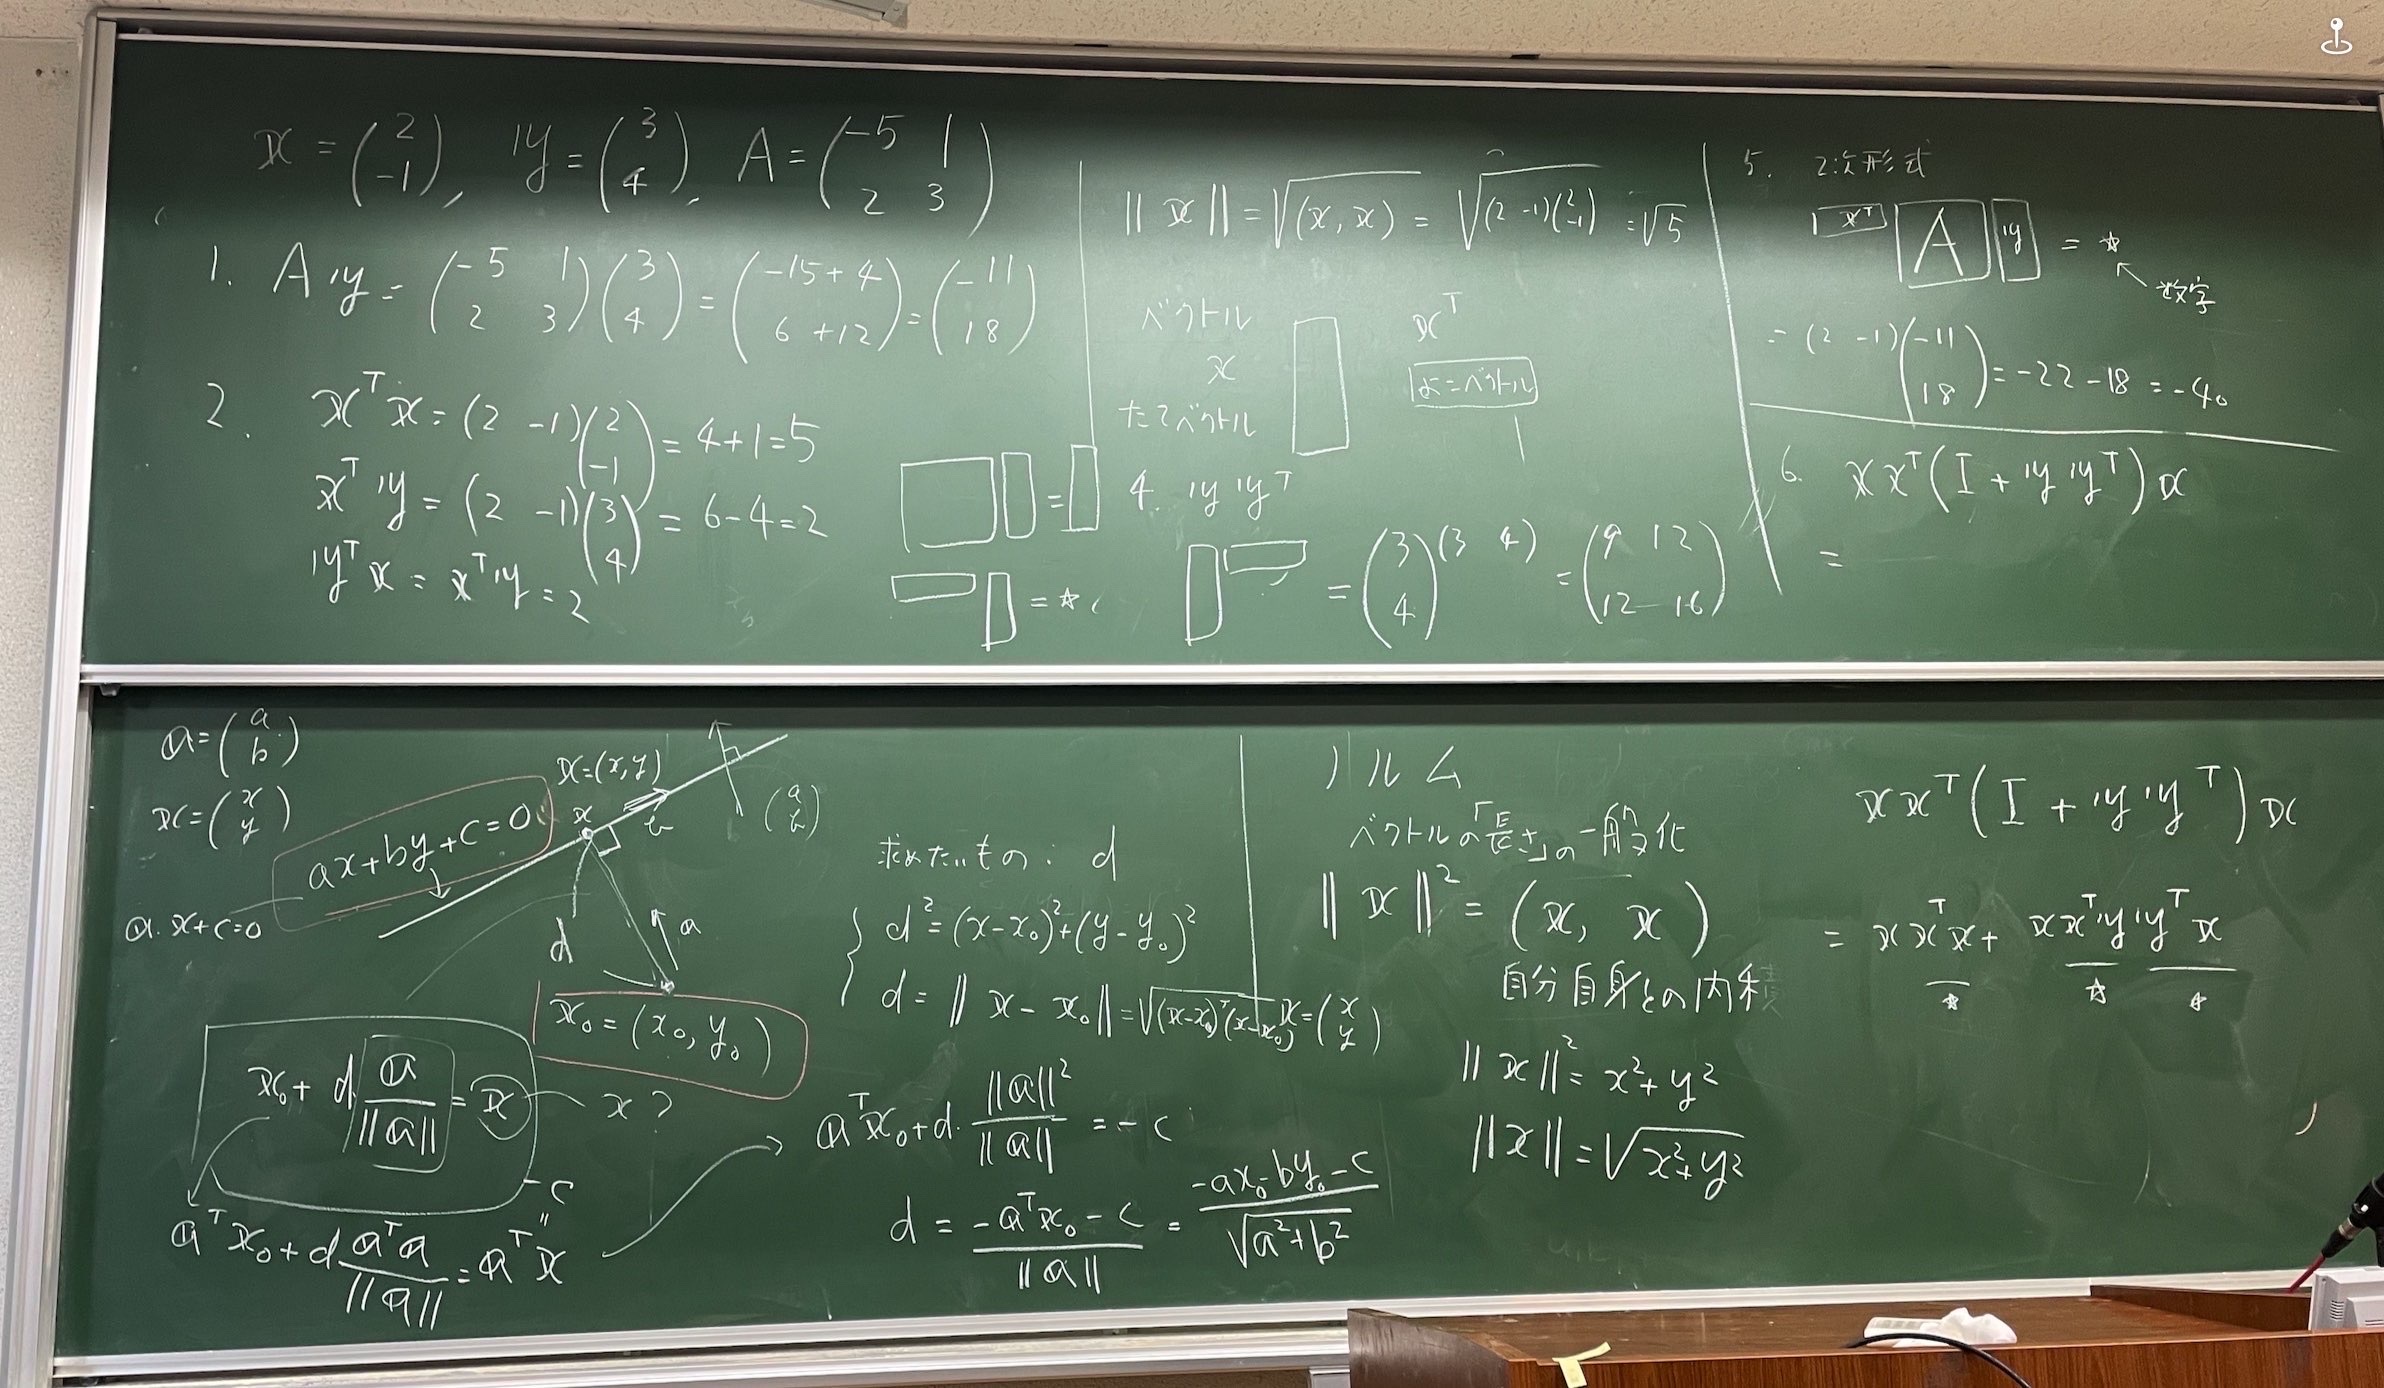 x = (2 -1), y = (3 4), A = (-5 1 2 3)
1. Ay = (-5 1 2 3)(3 4) = (-15+4 6+12) = (-11 18)
2. xᵀx = (2 -1)(2 -1) = 4+1=5
xᵀy = (2 -1)(3 4) = 6-4=2
yᵀx = xᵀy = 2
‖x‖ = √(x, x) = √(2 -1)(2 -1) = √5
ベクトル
x
たてベクトル
xᵀ
よこベクトル
= ☆
4. y yᵀ
= (3 4)(3 4) = (9 12 12 16)
5. 2次形式
xᵀ A y = ☆
数字
= (2 -1)(-11 18) = -22-18 = -40
6. xxᵀ(I + y yᵀ)x
=
a = (a b)
x = (x y)
ax+by+c=0
a・x+c=0
x=(x,y)
x
(a b)
d
a
x₀ = (x₀, y₀)
x₀ + d a/‖a‖ = x
x ?
-c
〃
aᵀx₀ + d aᵀa/‖a‖ = aᵀx
求めたいもの: d
d² = (x-x₀)²+(y-y₀)²
d = ‖x - x₀‖ = √(x-x₀)ᵀ(x-x₀)
x = (x y)
aᵀx₀ + d・‖a‖²/‖a‖ = -c
d = (-aᵀx₀ - c)/‖a‖ = (-ax₀-by₀-c)/√a²+b²
ノルム
ベクトルの「長さ」の一般化
‖x‖² = (x, x)
自分自身との内積
‖x‖² = x²+y²
‖x‖ = √x²+y²
xxᵀ(I + y yᵀ)x
= xxᵀx + xxᵀy yᵀx
☆ ☆ ☆